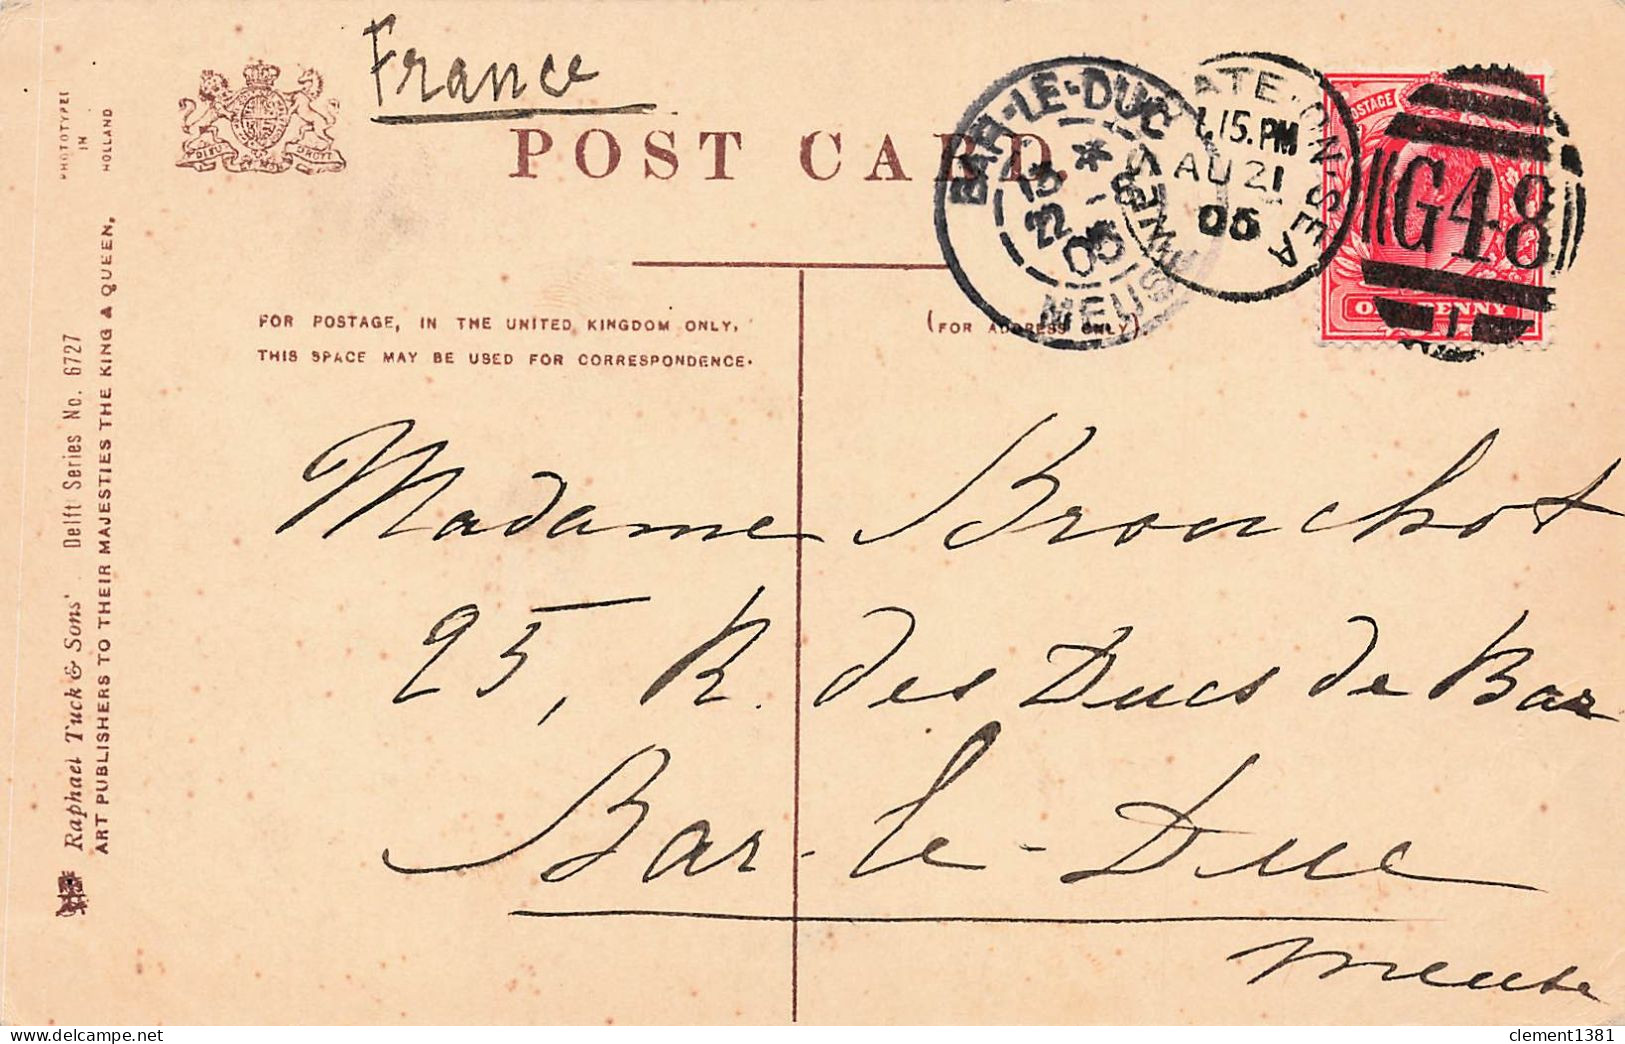 France
POST CARD.
FOR POSTAGE, IN THE UNITED KINGDOM ONLY,
THIS SPACE MAY BE USED FOR CORRESPONDENCE.
(FOR ADDRESS ONLY).
PHOTOTYPED
IN
HOLLAND
Raphael Tuck & Sons' Delft Series No. 6727
ART PUBLISHERS TO THEIR MAJESTIES THE KING & QUEEN.
DIEU
DROIT
BAR-LE-DUC
22
05
MEUSE
ATE-ON-SEA
1.15.PM
AU 21
05
POSTAGE
G48
1
PENNY
Madame Bronchot
25, R. des Ducs de Bar
Bar-le-Duc
Meuse
clement1381